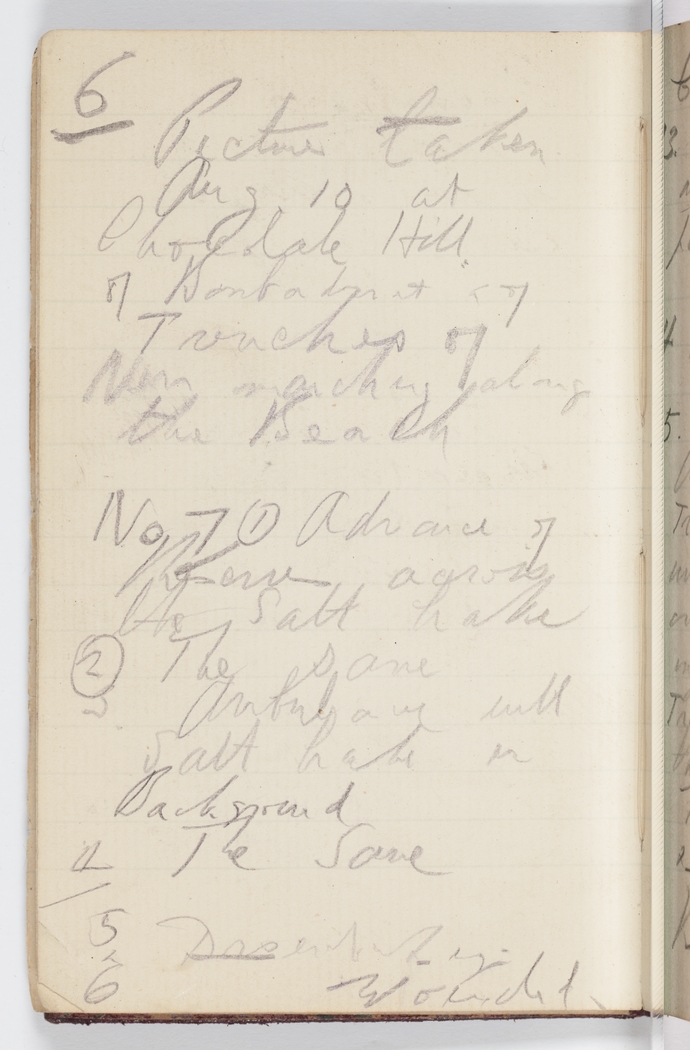 6
Pictures taken
Aug 10 at
Chocolate Hill
of Bombardment of
Trenches of
Men marching along
the Beach
No 7 ① Advance of
across
the Salt Lake
② The same
3 Ambulance with
Salt Lake in
Background
4 The Same
5
6 Wounded